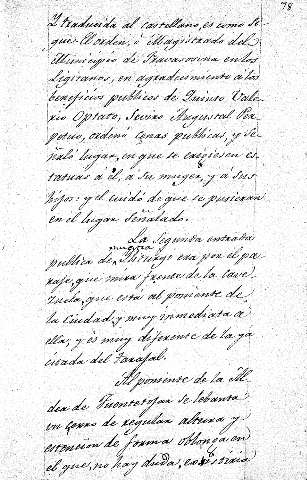 78
Y traducida al castellano, es como si-
gue: El orden, ó Magistrado del
Municipio de Itucurosina en los
Ligitanos, en agradecimiento á los
beneficios publicos de Quinto Vale-
rio Optato, Severo Augustal Per-
petuo, ordenó cenas publicas, y se-
ñaló lugar, en que se erigiesen es-
tatuas á él, á su muger, y á sus
hijos: y él cuidó de que se pusieran
en el lugar señalado.
La segunda entrada
publica de era por el pa-
raje, que mira frente de la Cave-
zuela, que está al poniente de
la Ciudad, y muy inmediata á
ella; y és muy diferente de la ya
citada del Tarajal.
Al poniente de la Al-
dea de Fuentetojar se lebanta
un cerro de regular altura y
estencion de forma oblonga en
el que, no hay duda,